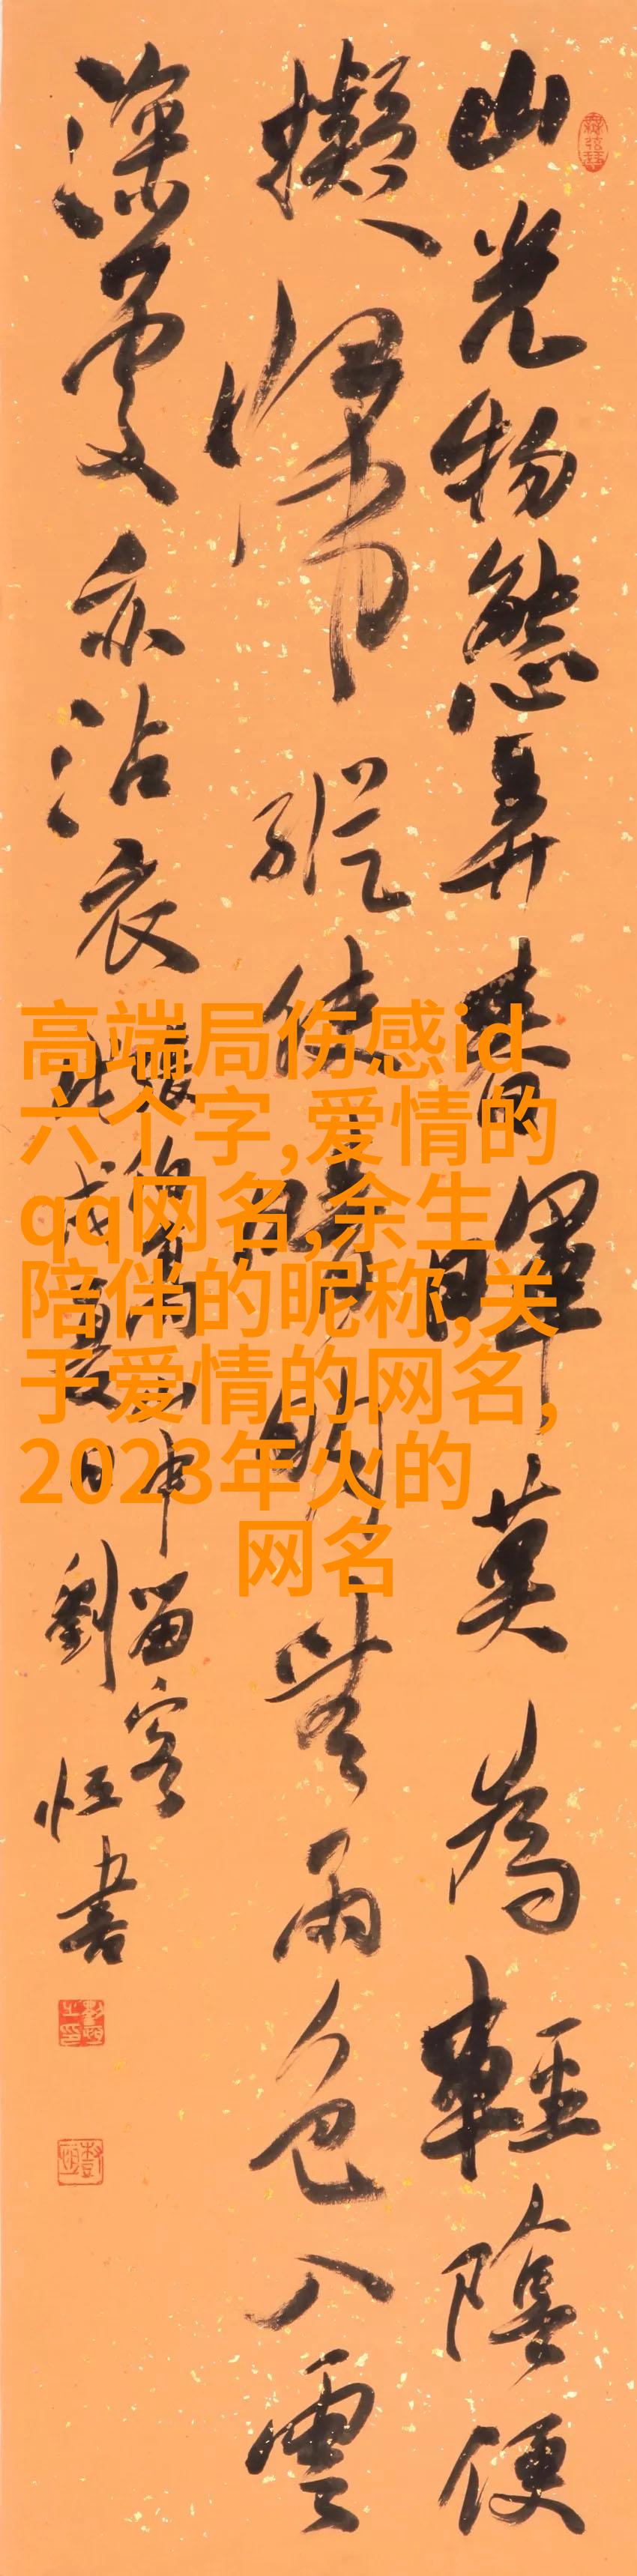 山光物態弄春暉莫為輕陰便
擬歸縱使晴明無雨色入雲
深處亦沾衣
張旭山中留客
夏日
劉恒書
高端局伤感id
六个字,爱情的
qq网名,余生
陪伴的昵称,关
于爱情的网名,
2023年火的
网名